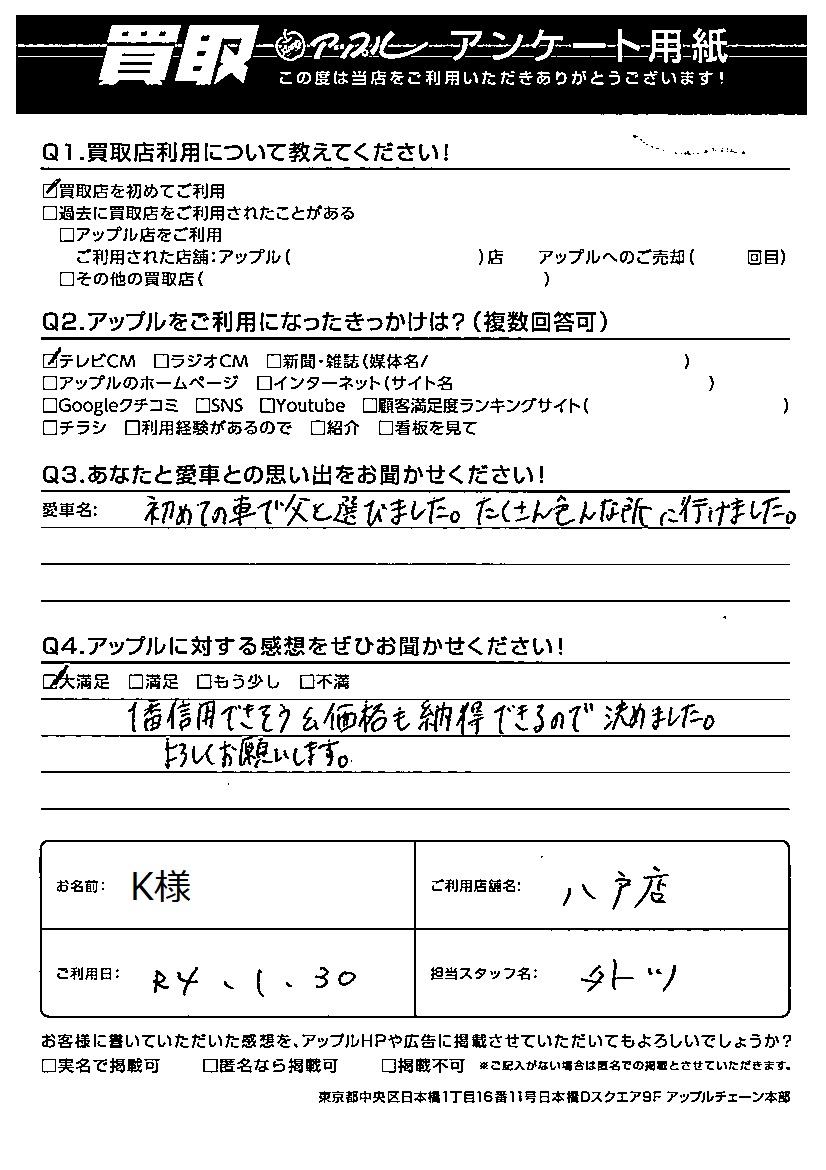 買取 アップル アンケート用紙
この度は当店をご利用いただきありがとうございます!
Q1.買取店利用について教えてください!
☑買取店を初めてご利用
□過去に買取店をご利用されたことがある
□アップル店をご利用
ご利用された店舗:アップル( )店 アップルへのご売却( 回目)
□その他の買取店( )
Q2.アップルをご利用になったきっかけは?(複数回答可)
☑テレビCM □ラジオCM □新聞・雑誌(媒体名/ )
□アップルのホームページ □インターネット(サイト名 )
□Googleクチコミ □SNS □Youtube □顧客満足度ランキングサイト( )
□チラシ □利用経験があるので □紹介 □看板を見て
Q3.あなたと愛車との思い出をお聞かせください!
愛車名: 初めての車で父と選びました。たくさん色んな所に行けました。
Q4.アップルに対する感想をぜひお聞かせください!
☑大満足 □満足 □もう少し □不満
1番信用できそう&価格も納得できるので決めました。
よろしくお願いします。
お名前: K様 ご利用店舗名: 八戸店
ご利用日: R4、1、30 担当スタッフ名:
お客様に書いていただいた感想を、アップルHPや広告に掲載させていただいてもよろしいでしょうか?
□実名で掲載可 □匿名なら掲載可 □掲載不可 ※ご記入がない場合は匿名での掲載とさせていただきます。
東京都中央区日本橋1丁目16番11号日本橋Dスクエア9F アップルチェーン本部